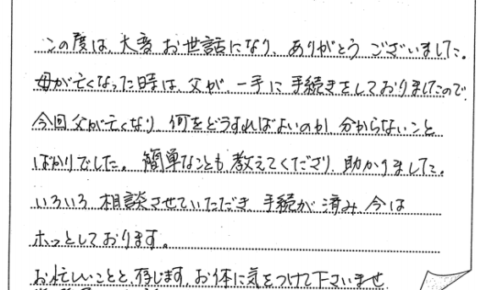 この度は、大変お世話になり、ありがとうございました。
母が亡くなった時は、父が、一手に手続きをしておりましたので、
今回父が亡くなり、何をどうすればよいのか、分からないこと
ばかりでした。簡単なことも教えてくださり、助かりました。
いろいろ相談させていただき、手続が済み、今は
ホッとしております。
お忙しいことと存じます、お体に気をつけて下さいませ